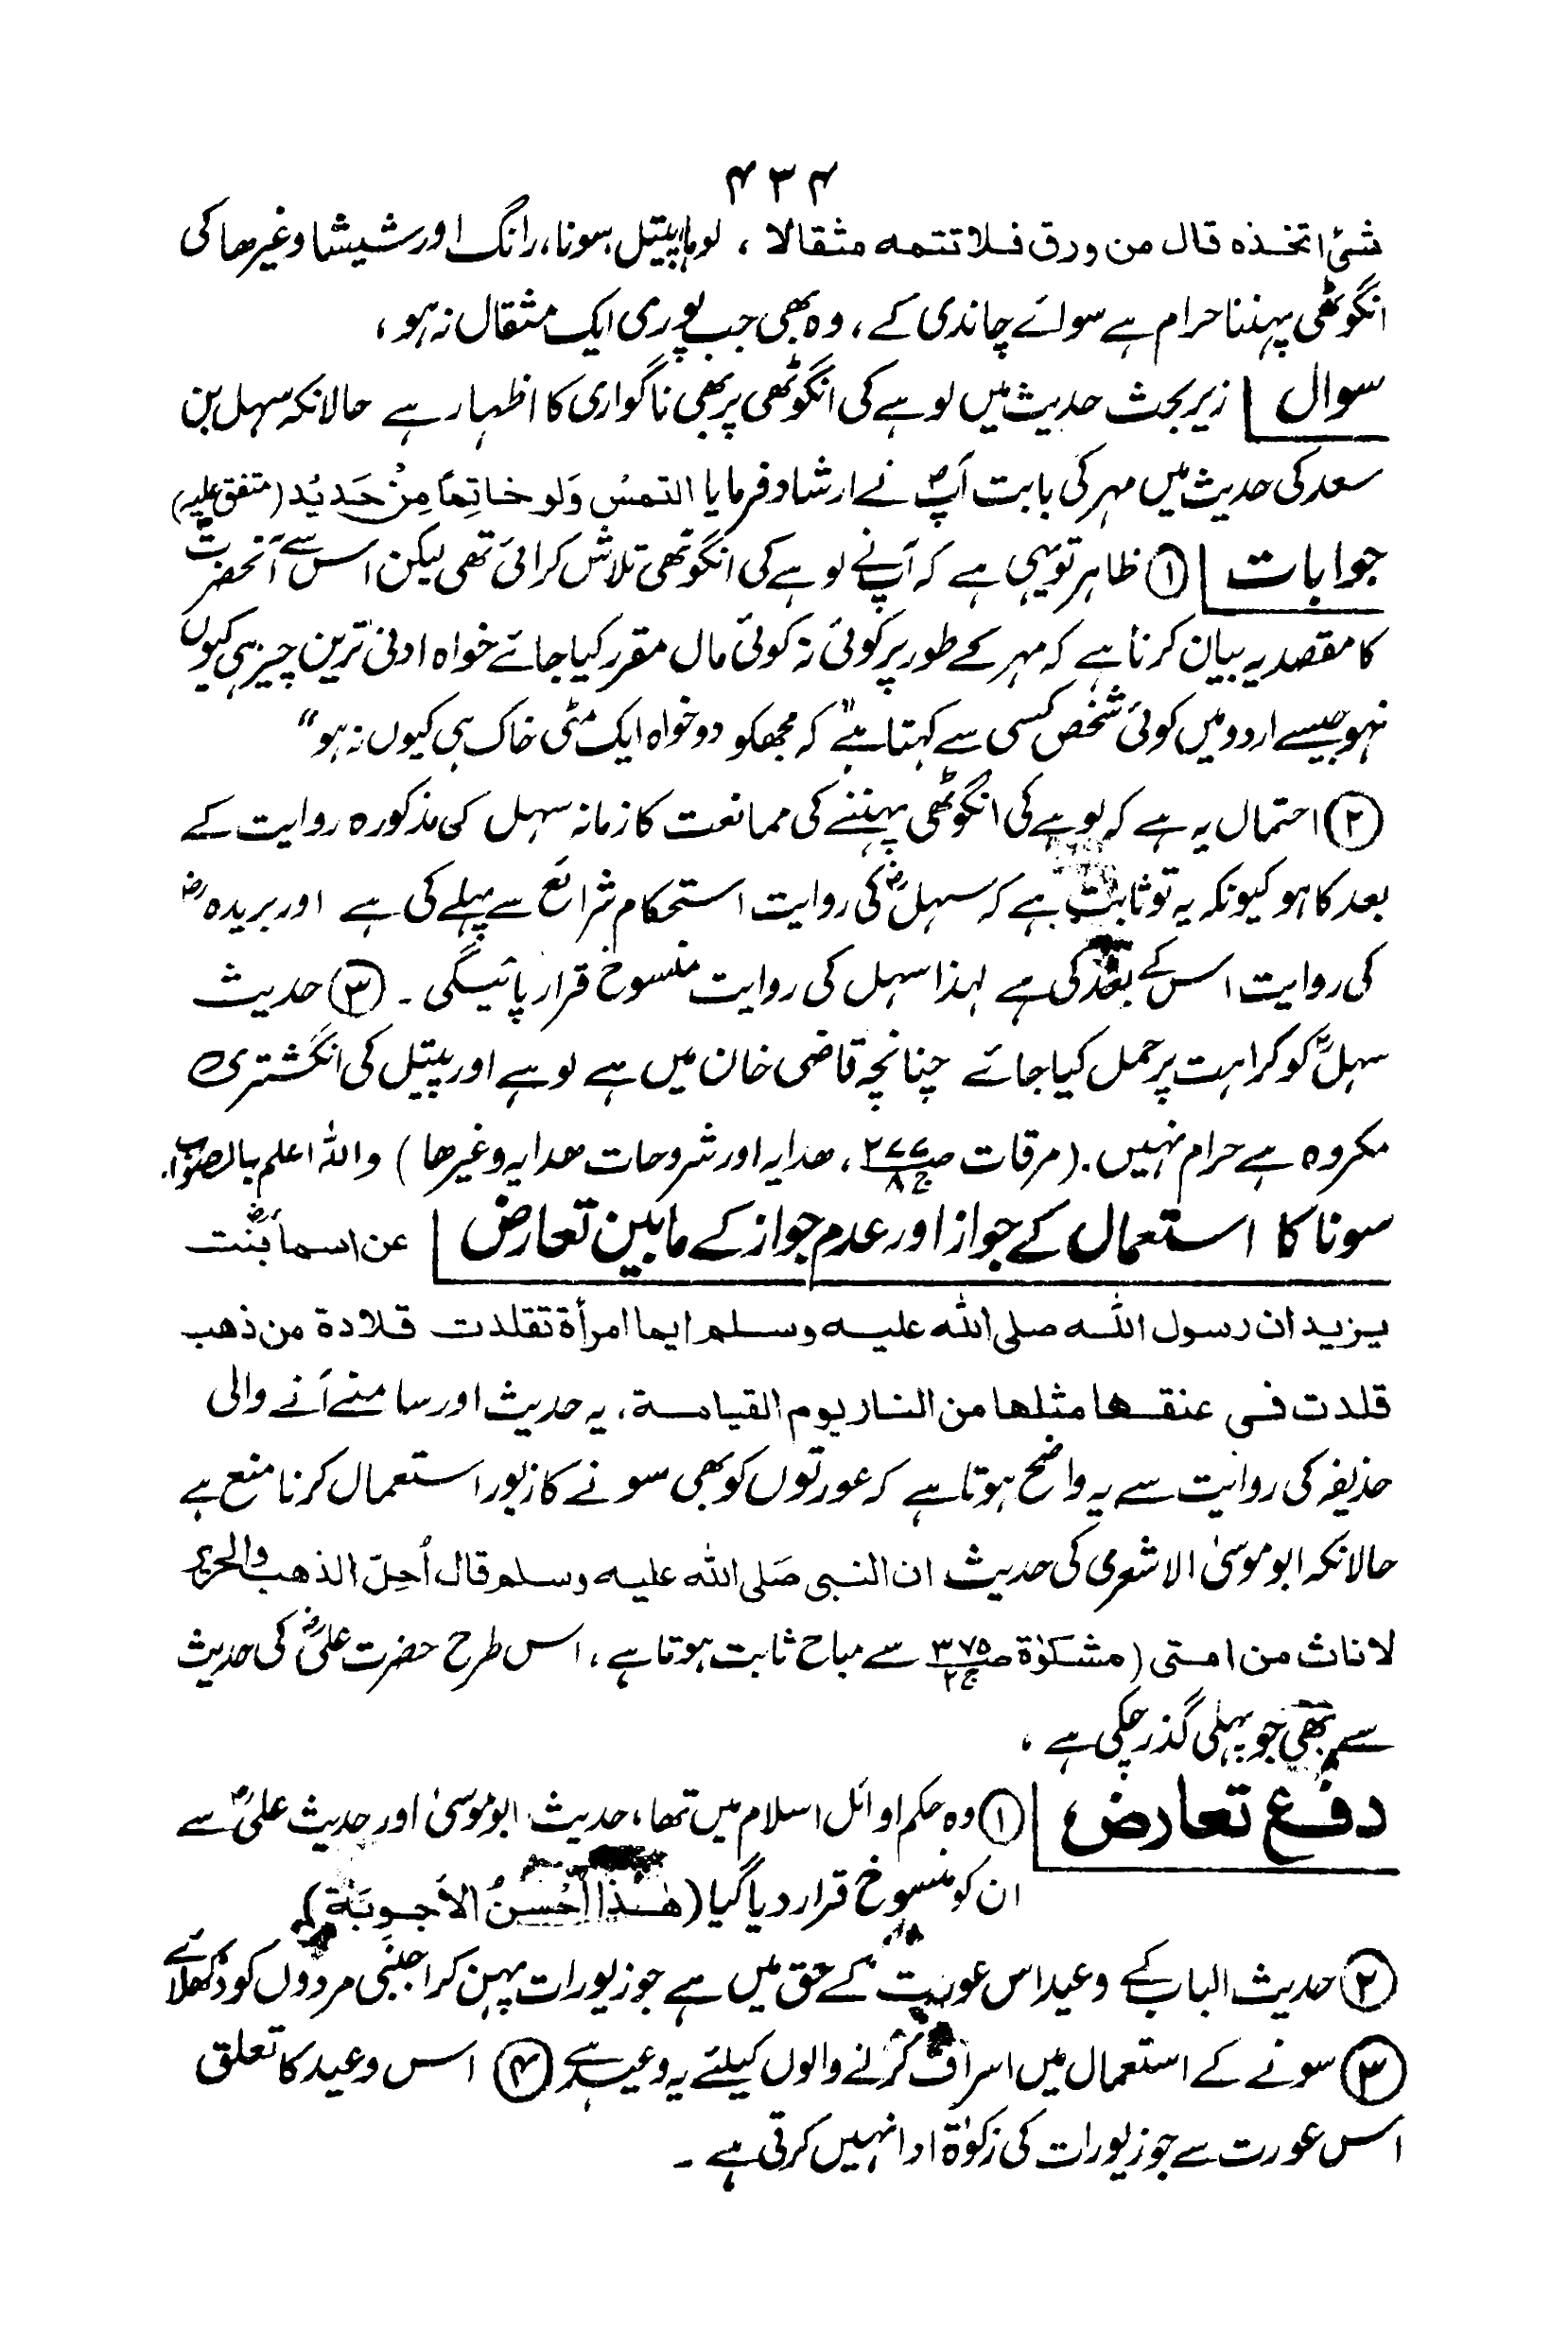 ۴۳۴
شئ اتخذه قال من ورق فلا تتمه مثقالا ، لوہا، پیتل، سونا، رانگ اور شیشا وغیرھا کی
انگوٹھی پہننا حرام ہے سوائے چاندی کے ، وہ بھی جب پوری ایک مثقال نہ ہو ،
سوال زیر بحث حدیث میں لوہے کی انگوٹھی پر بھی ناگواری کا اظہار ہے حالانکہ سہل بن
سعد کی حدیث میں مہر کی بابت آپؐ نے ارشاد فرمایا التمسْ وَلو خاتِمًا مِنْ حَدِيْد (متفق علیہ)
جوابات ① ظاہر تو یہی ہے کہ آپؐ نے لوہے کی انگوٹھی تلاش کرائی تھی لیکن اس سے آنحضرتؐ
کا مقصد یہ بیان کرنا ہے کہ مہر کے طور پر کوئی نہ کوئی مال مقرر کیا جائے خواہ ادنی ترین چیز ہی کیوں
نہو جیسے اردو میں کوئی شخص کسی سے کہتا ہے " کہ مجھکو دو خواہ ایک مٹی خاک ہی کیوں نہ ہو "
② احتمال یہ ہے کہ لوہے کی انگوٹھی پہننے کی ممانعت کا زمانہ سہل کی مذکورہ روایت کے
بعد کا ہو کیونکہ یہ تو ثابت ہے کہ سہلؓ کی روایت استحکام شرائع سے پہلے کی ہے اور بریدہؓ
کی روایت اس کے بعد کی ہے لہذا سہل کی روایت منسوخ قرار پائیگی ۔ ③ حدیث
سہلؓ کو کراہت پر حمل کیا جائے چنانچہ قاضی خان میں ہے لوہے اور پیتل کی انگشتری
مکروہ ہے حرام نہیں . (مرقات ص۲۷۷ ج۸ ، ھدایہ اور شروحات ھدایہ وغیرھا ) واللہ اعلم بالصواب.
سونا کا استعمال کے جواز اور عدم جواز کے مابین تعارض عن اسماءؓ بنت
یزید ان رسول اللہ صلی اللہ علیہ وسلم ایما امرأة تقلدت قلادة من ذهب
قلدت فی عنقها مثلها من النار یوم القیامة ، یہ حدیث اور سامنے آنے والی
حذیفہ کی روایت سے یہ واضح ہوتا ہے کہ عورتوں کو بھی سونے کا زیور استعمال کرنا منع ہے
حالانکہ ابوموسیٰ الاشعری کی حدیث ان النبی صَلی اللہ علیہ وسلم قال أُحِلّ الذهب والحریر
لاناث من امتی (مشکوٰة ص۳۷۵ ج۲ سے مباح ثابت ہوتا ہے ، اس طرح حضرت علیؓ کی حدیث
سے بھی جو پہلی گذر چکی ہے ،
دفع تعارض ① وہ حکم اوائل اسلام میں تھا ، حدیث ابوموسیٰ اور حدیث علیؓ سے
ان کو منسوخ قرار دیا گیا (هٰذا أحْسنُ الأَجوِبَة)
② حدیث الباب کے وعید اس عورت کے حق میں ہے جو زیورات پہن کر اجنبی مردوں کو دکھلائے
③ سونے کے استعمال میں اسراف کرنے والوں کیلئے یہ وعید ہے ④ اس وعید کا تعلق
اس عورت سے جو زیورات کی زکوٰة ادا نہیں کرتی ہے ۔